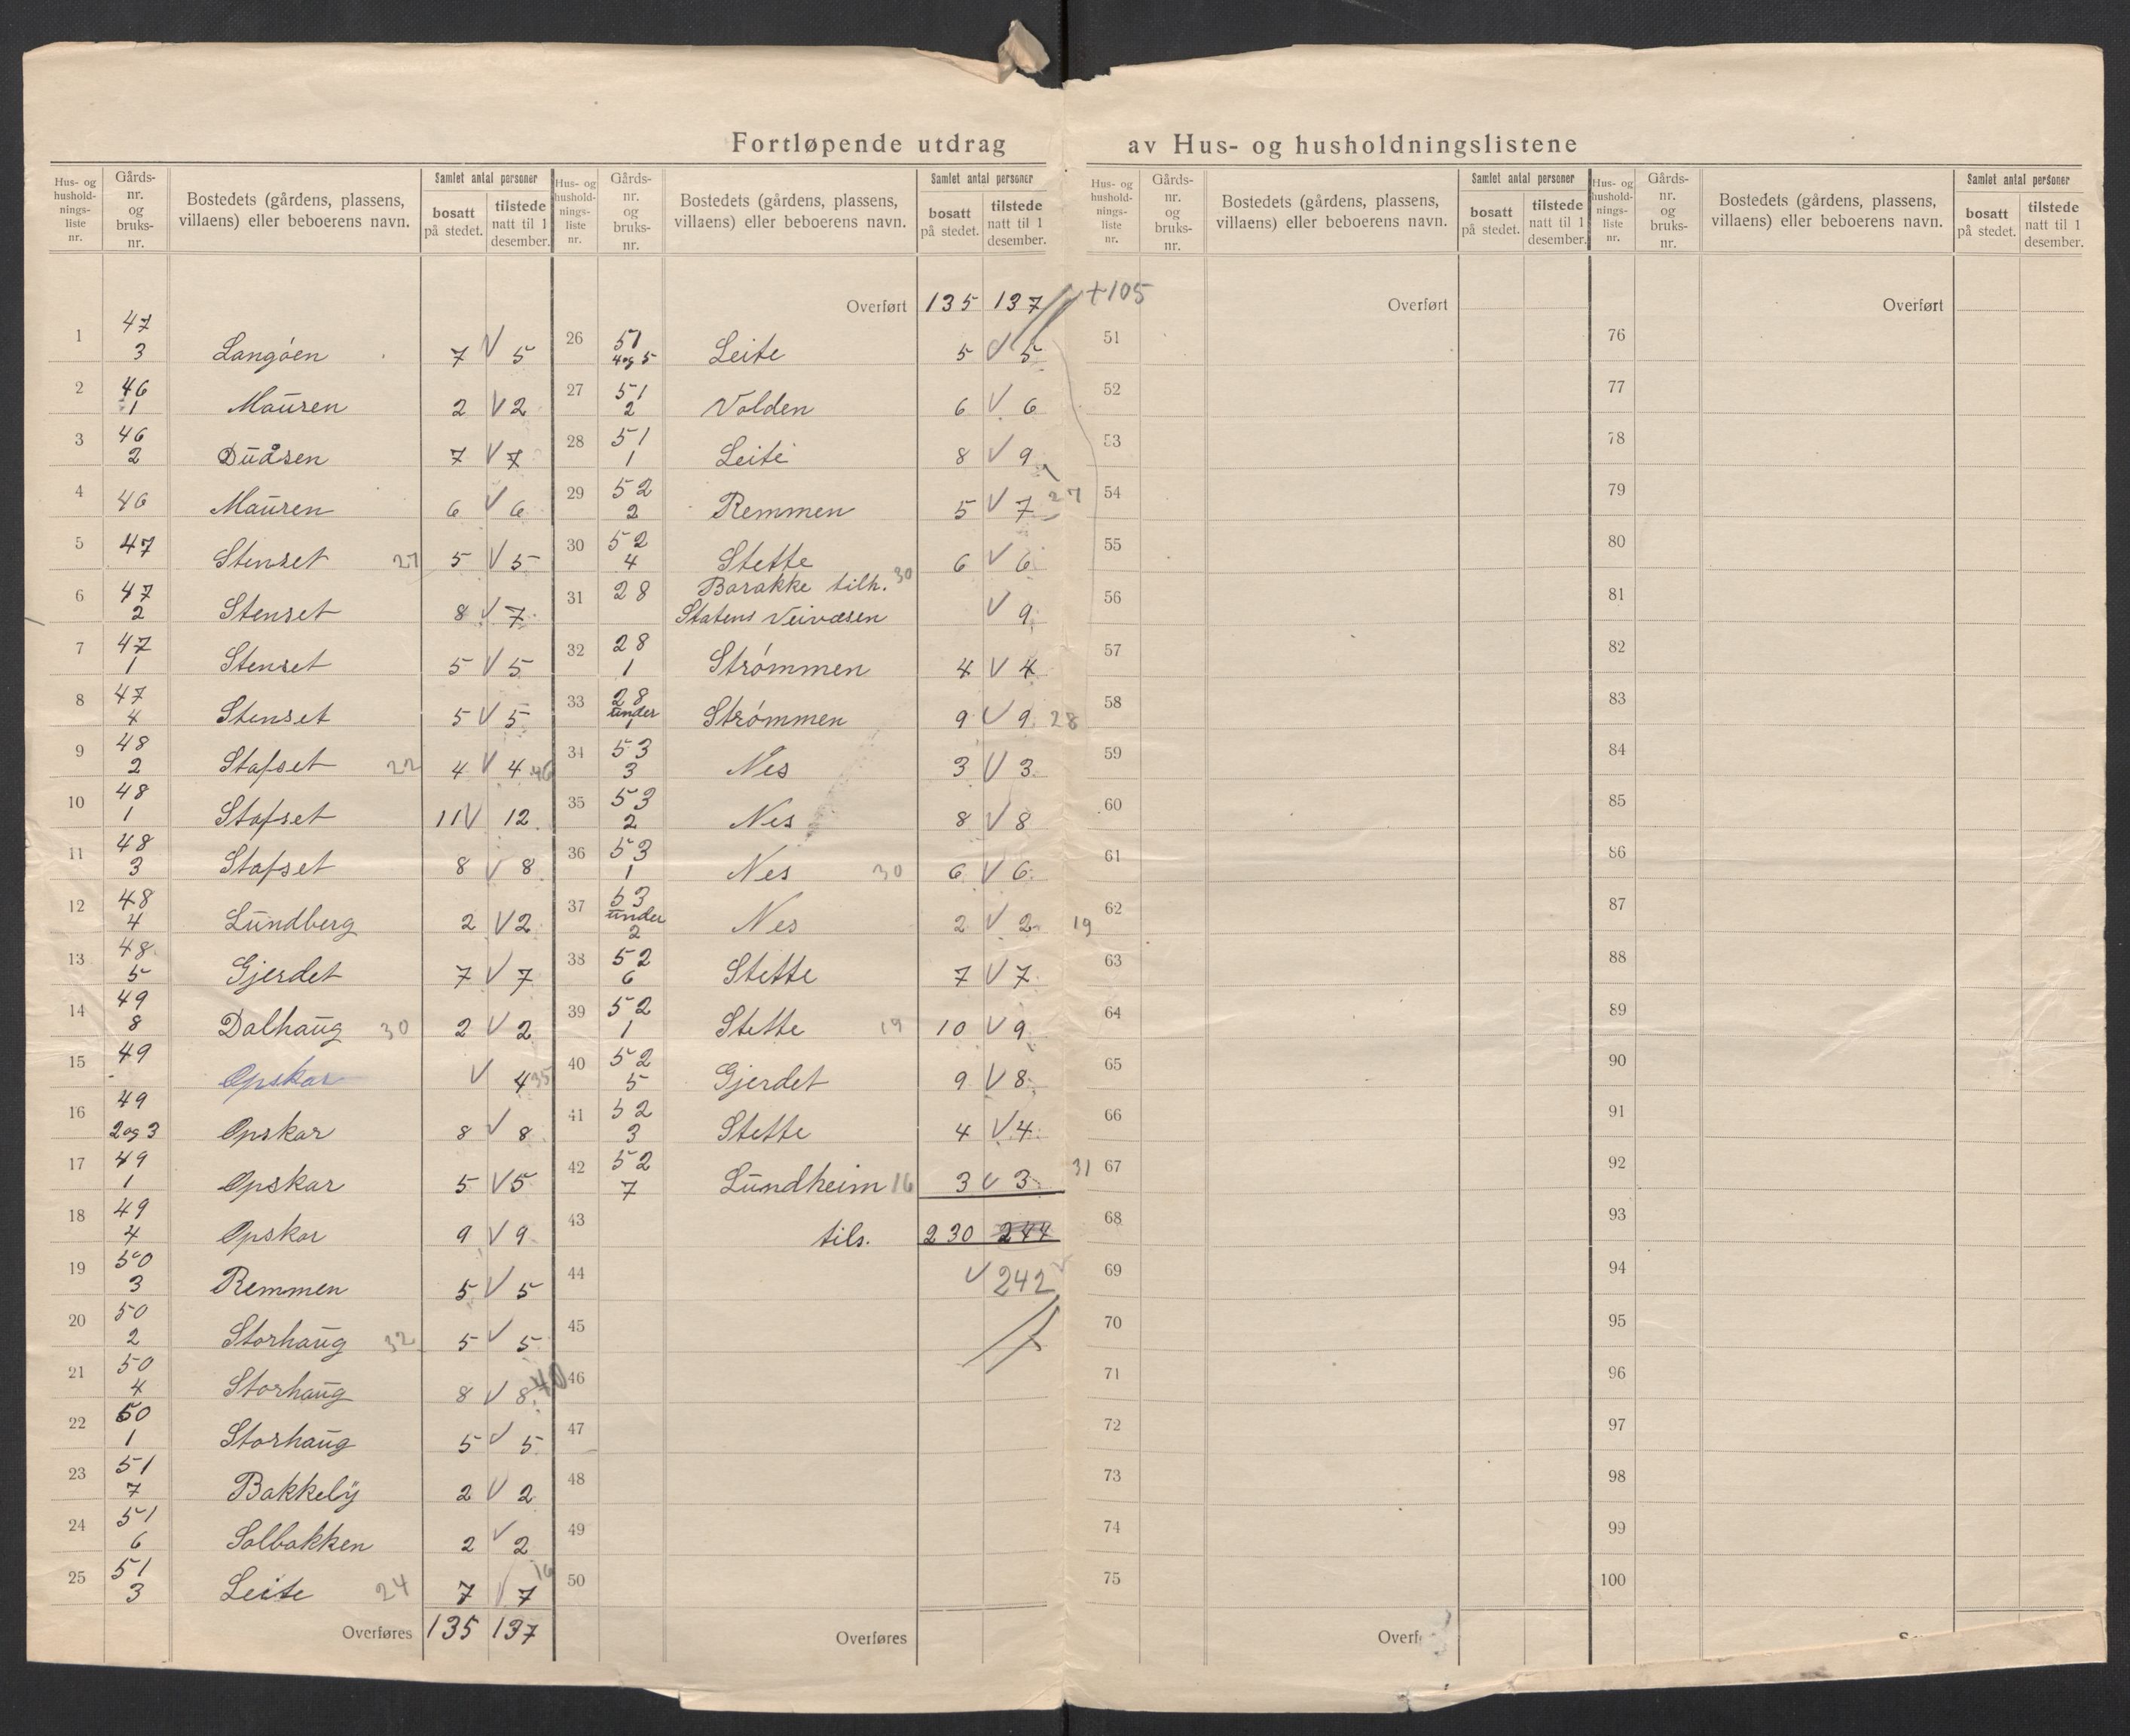 Fortløpende utdrag av Hus- og husholdningslistene
Hus- og hushold-nings-liste nr. | Gårds-nr. og bruks-nr. | Bostedets (gårdens, plassens, villaens) eller beboerens navn. | Samlet antal personer | bosatt på stedet. | tilstede natt til 1 desember.
1 47 3 Langöen 7 V 5
2 46 1 Mauren 2 V 2
3 46 2 Duåsen 7 V 7
4 46 Mauren 6 V 6
5 47 Stenset 27 5 V 5
6 47 2 Stenset 8 V 7
7 47 1 Stenset 5 V 5
8 47 4 Stenset 5 V 5
9 48 2 Stafset 22 4 V 4 46
10 48 1 Stafset 11 V 12
11 48 3 Stafset 8 V 8
12 48 4 Lundberg 2 V 2
13 48 5 Gjerdet 7 V 7
14 49 8 Dalhaug 30 2 V 2
15 49 - Opskar V 4 35
16 49 2 og 3 Opskar 8 V 8
17 49 1 Opskar 5 V 5
18 49 4 Opskar 9 V 9
19 50 3 Remmen 5 V 5
20 50 2 Storhaug 32 5 V 5
21 50 4 Storhaug 8 V 8 40
22 50 1 Storhaug 5 V 5
23 51 7 Bakkely 2 V 2
24 51 6 Solbakken 2 V 2
25 51 3 Leite 24 7 V 7 16
Overføres 135 137
Hus- og hushold-nings-liste nr. | Gårds-nr. og bruks-nr. | Bostedets (gårdens, plassens, villaens) eller beboerens navn. | Samlet antal personer | bosatt på stedet. | tilstede natt til 1 desember.
Overført 135 137 +105
26 51 4 og 5 Leite 5 V 5
27 51 2 Volden 6 V 6
28 51 1 Leite 8 V 9
29 52 2 Remmen 5 V 7 27
30 52 4 Stette 6 V 6
31 28 Barakke tilh. 30
Statens Veivæsen V 9
32 28 1 Strömmen 4 V 4
33 28 under 1 Strömmen 9 V 9 28
34 53 3 Nes 3 V 3
35 53 2 Nes 8 V 8
36 53 1 Nes 30 6 V 6
37 53 under 2 Nes 2 V 2 19
38 52 6 Stette 7 V 7
39 52 1 Stette 19 10 V 9
40 52 5 Gjerdet 9 V 8
41 52 3 Stette 4 V 4
42 52 7 Lundheim 16 3 V 3 31
43 tils. 230 244
44 V 242
45
46
47
48
49
50
Overføres
Hus- og hushold-nings-liste nr. | Gårds-nr. og bruks-nr. | Bostedets (gårdens, plassens, villaens) eller beboerens navn. | Samlet antal personer | bosatt på stedet. | tilstede natt til 1 desember.
Overført
51
52
53
54
55
56
57
58
59
60
61
62
63
64
65
66
67
68
69
70
71
72
73
74
75
Overf
Hus- og hushold-nings-liste nr. | Gårds-nr. og bruks-nr. | Bostedets (gårdens, plassens, villaens) eller beboerens navn. | Samlet antal personer | bosatt på stedet. | tilstede natt til 1 desember.
Overført
76
77
78
79
80
81
82
83
84
85
86
87
88
89
90
91
92
93
94
95
96
97
98
99
100